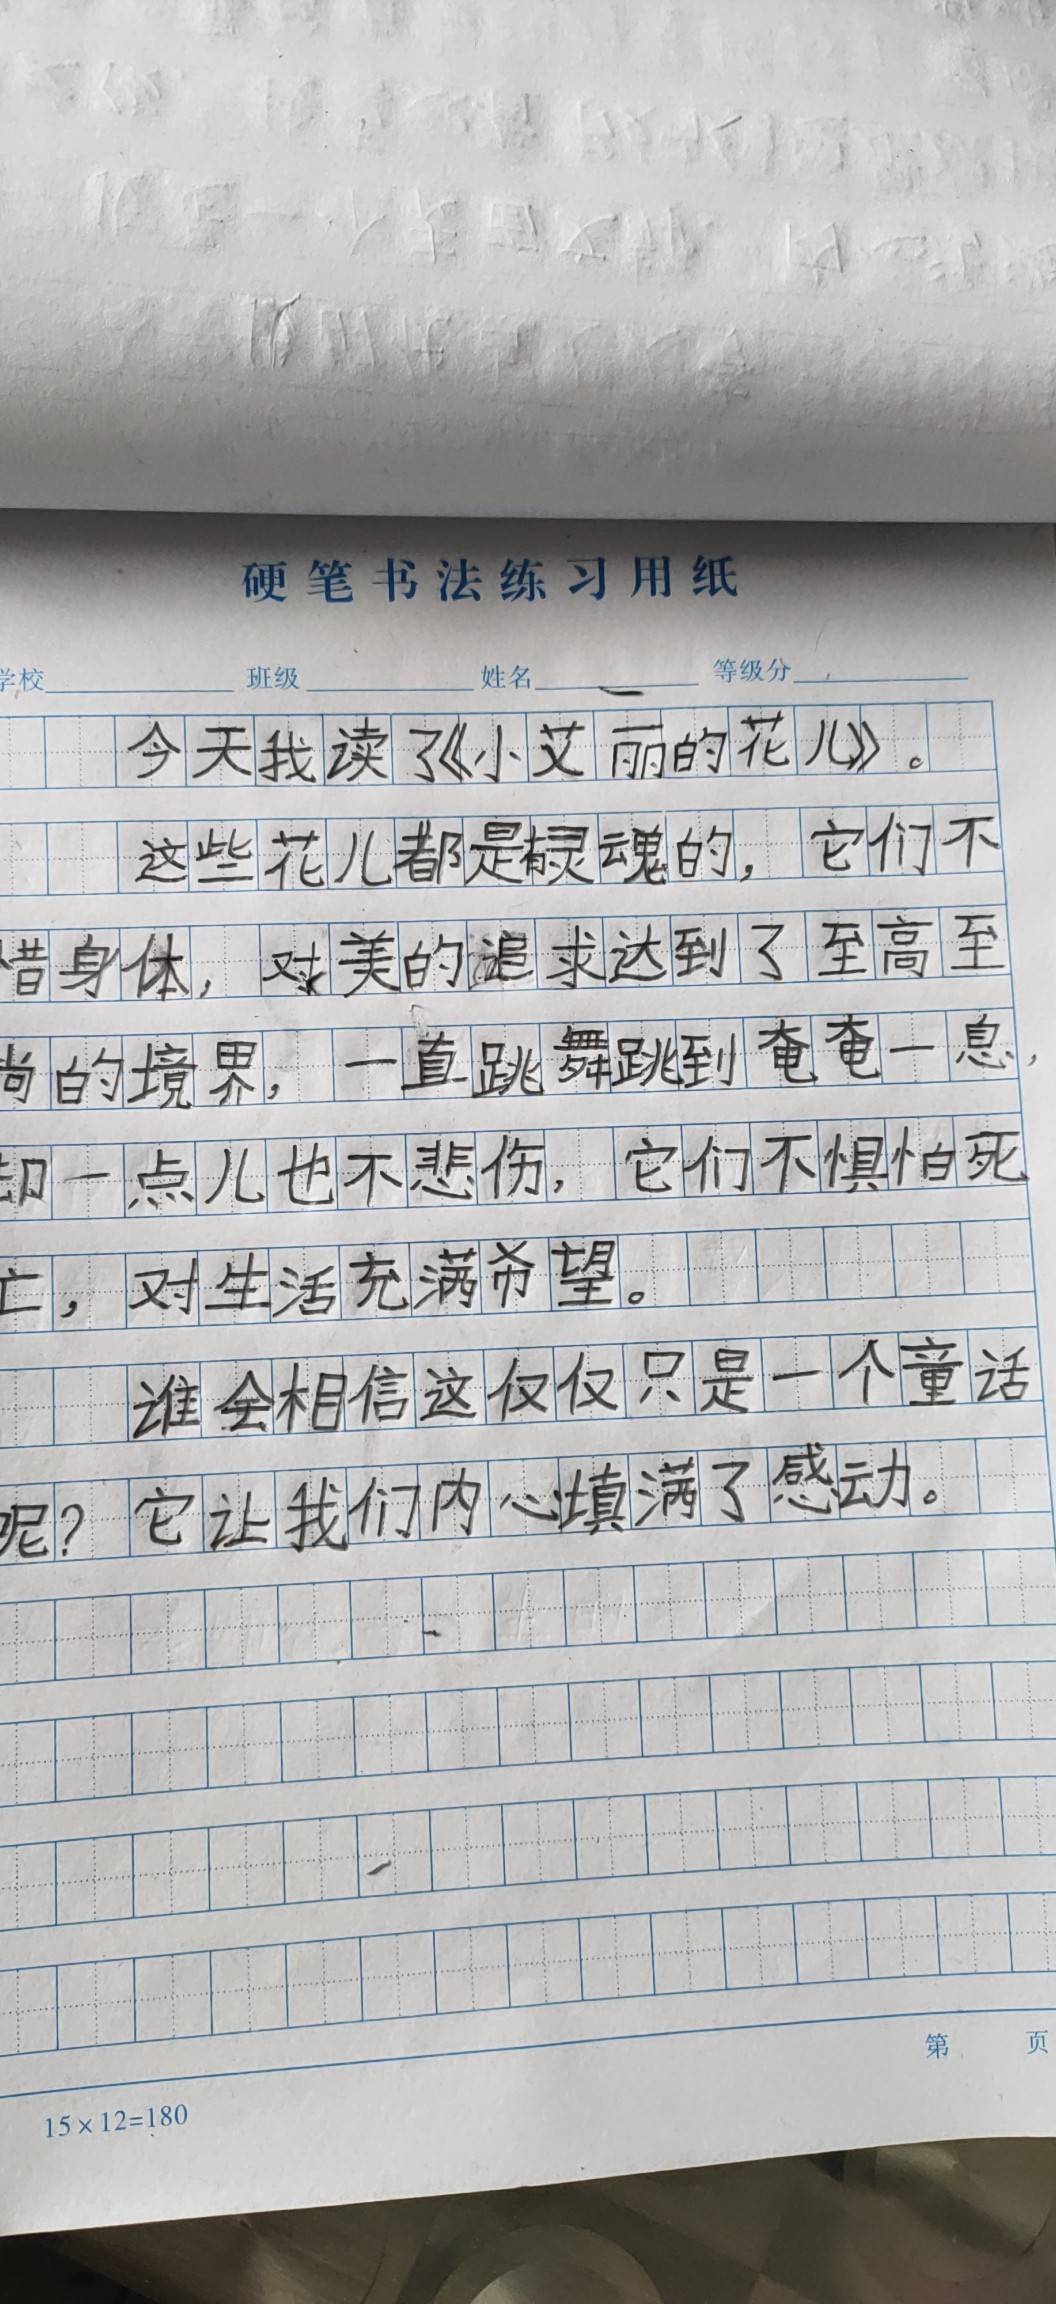 硬笔书法练习用纸
学校 班级 姓名 等级分
今天我读了《小艾丽的花儿》。
这些花儿都是有灵魂的，它们不
惜身体，对美的追求达到了至高至
尚的境界，一直跳舞跳到奄奄一息，
却一点儿也不悲伤，它们不惧怕死
亡，对生活充满希望。
谁会相信这仅仅只是一个童话
呢？它让我们内心填满了感动。
第 页
15×12=180